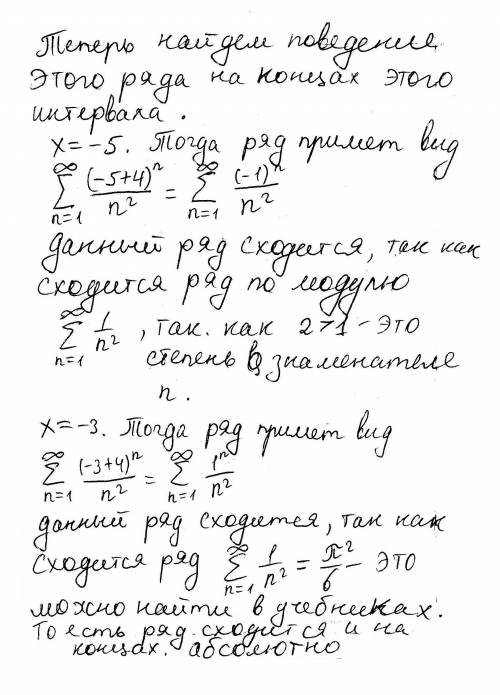 Теперь найдем поведение
этого ряда на концах этого
интервала.
x=-5. Тогда ряд примет вид
∞ ∑ n=1 (-5+4)^n / n^2 = ∞ ∑ n=1 (-1)^n / n^2
данный ряд сходится, так как
сходится ряд по модулю
∞ ∑ n=1 1/n^2, так. как 2>1 - это
степень в знаменателе
n.
x=-3. Тогда ряд примет вид
∞ ∑ n=1 (-3+4)^n / n^2 = ∞ ∑ n=1 1^n / n^2
данный ряд сходится, так как
сходится ряд ∞ ∑ n=1 1/n^2 = π^2/6 - это
можно найти в учебниках.
То есть ряд сходится и на
концах. абсолютно